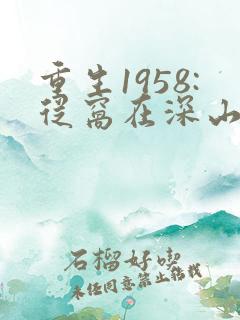 重生1958:
从窝在深山
石榴好吃
未经同意禁止转载